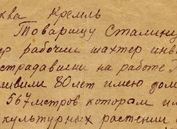 ква Кремль
Товарищу Сталину
рабочий шахтер инв
страдавший на работе
80 лет имею дом
567 метров котором
культурных растений